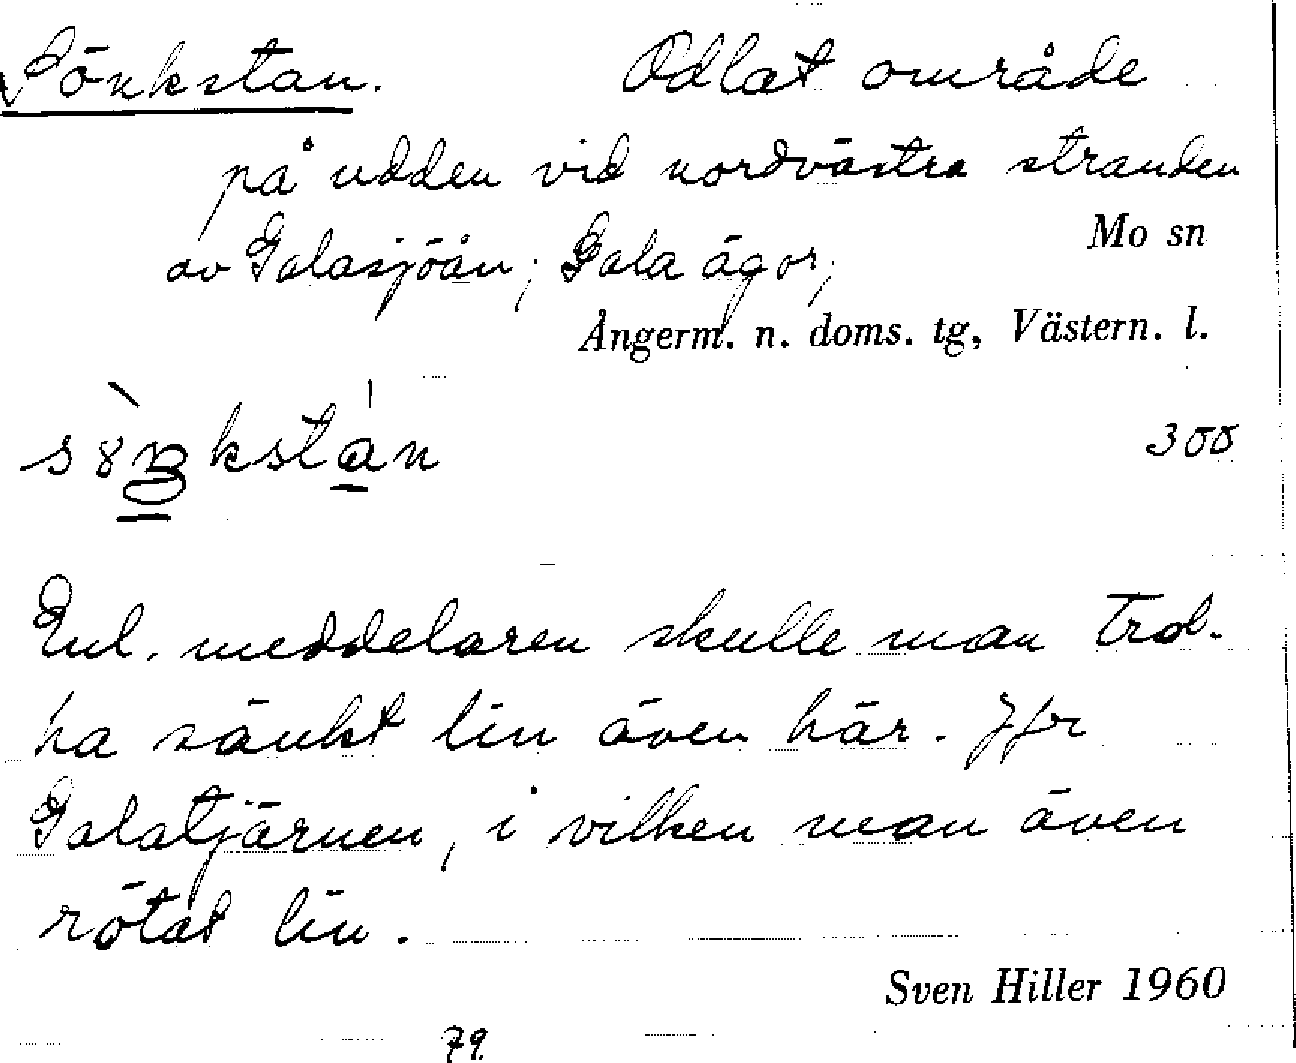 Sönkstan. Odlat område
på udden vid nordvästra stranden
Mo sn
av Galasjöån; Gala ägor;
Ångerm. n. doms. tg, Västern. l.
300
Enl. meddelaren skulle man trol.
ha sänkt lin även här. Jfr
Galatjärnen, i vilken man även
rötat lin.
Sven Hiller 1960
79.